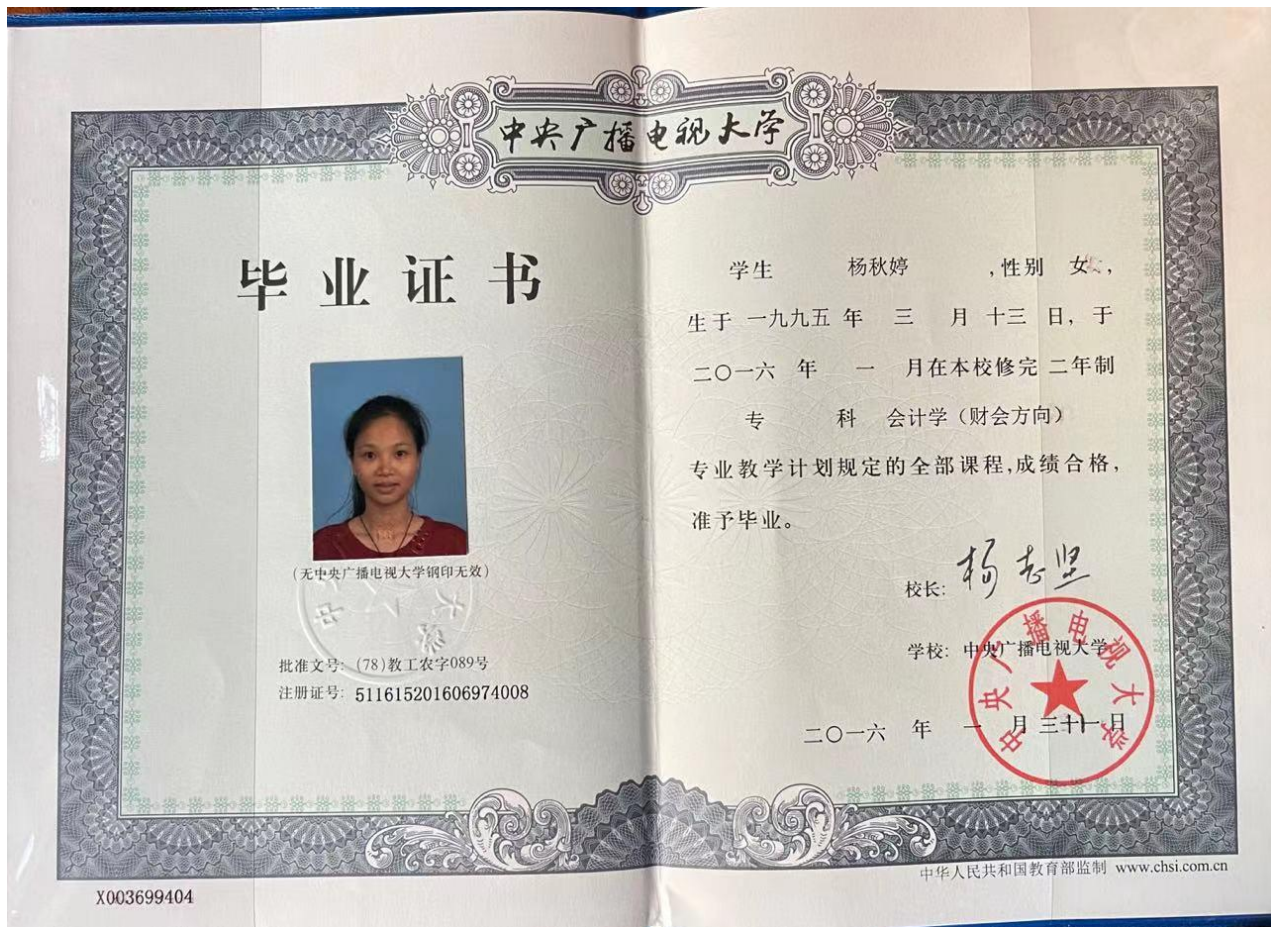 中央广播电视大学
毕业证书
(无中央广播电视大学钢印无效)
批准文号: (78)教工农字089号
注册证号: 511615201606974008
学生 杨秋婷 ,性别 女,
生于 一九九五 年 三 月 十三 日, 于
二〇一六 年 一 月在本校修完 二年制
专 科 会计学(财会方向)
专业教学计划规定的全部课程,成绩合格,
准予毕业。
校长: 杨志坚
学校: 中央广播电视大学
中央广播电视大学
二〇一六 年 一 月 三十一 日
中华人民共和国教育部监制 www.chsi.com.cn
X003699404